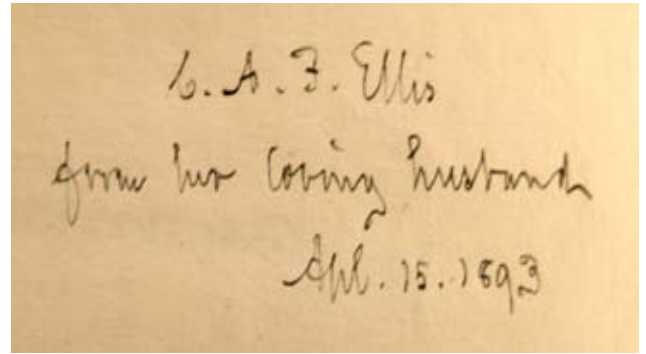 C. A. F. Ellis
from her loving husband
Apl. 15. 1893